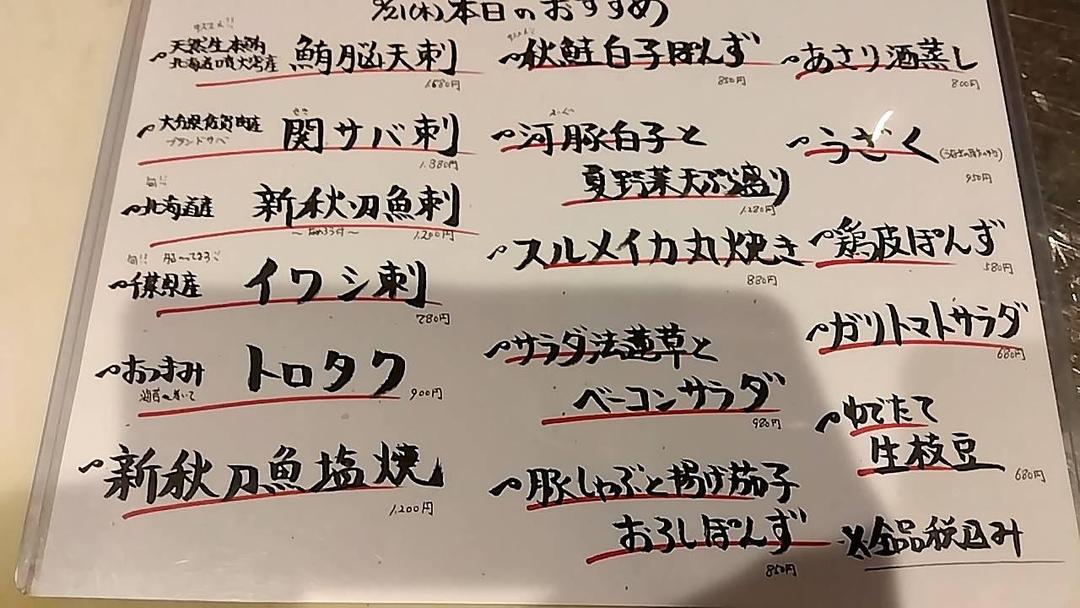 9/21(木)本日のおすすめ
オススメ!!
天然生本鮪
北海道噴火湾産
鮪脳天刺
1,680円
大分県佐賀関産
ブランドサバ
関サバ刺
1,380円
旬!!
北海道産
新秋刀魚刺
1,200円
旬!! 脂のってまる
千葉県産
イワシ刺
780円
おつまみ
海苔に巻いて
トロタク
900円
新秋刀魚塩焼
1,200円
オススメ!!
秋鮭白子ぽんず
850円
河豚白子と
夏野菜天ぷら盛り
1,280円
スルメイカ丸焼き
880円
サラダ法蓮草と
ベーコンサラダ
980円
豚しゃぶと揚げ茄子
おろしぽんず
850円
あさり酒蒸し
800円
うざく
950円
鶏皮ぽんず
580円
ガリトマトサラダ
680円
ゆでたて
生枝豆
680円
※全品税込み